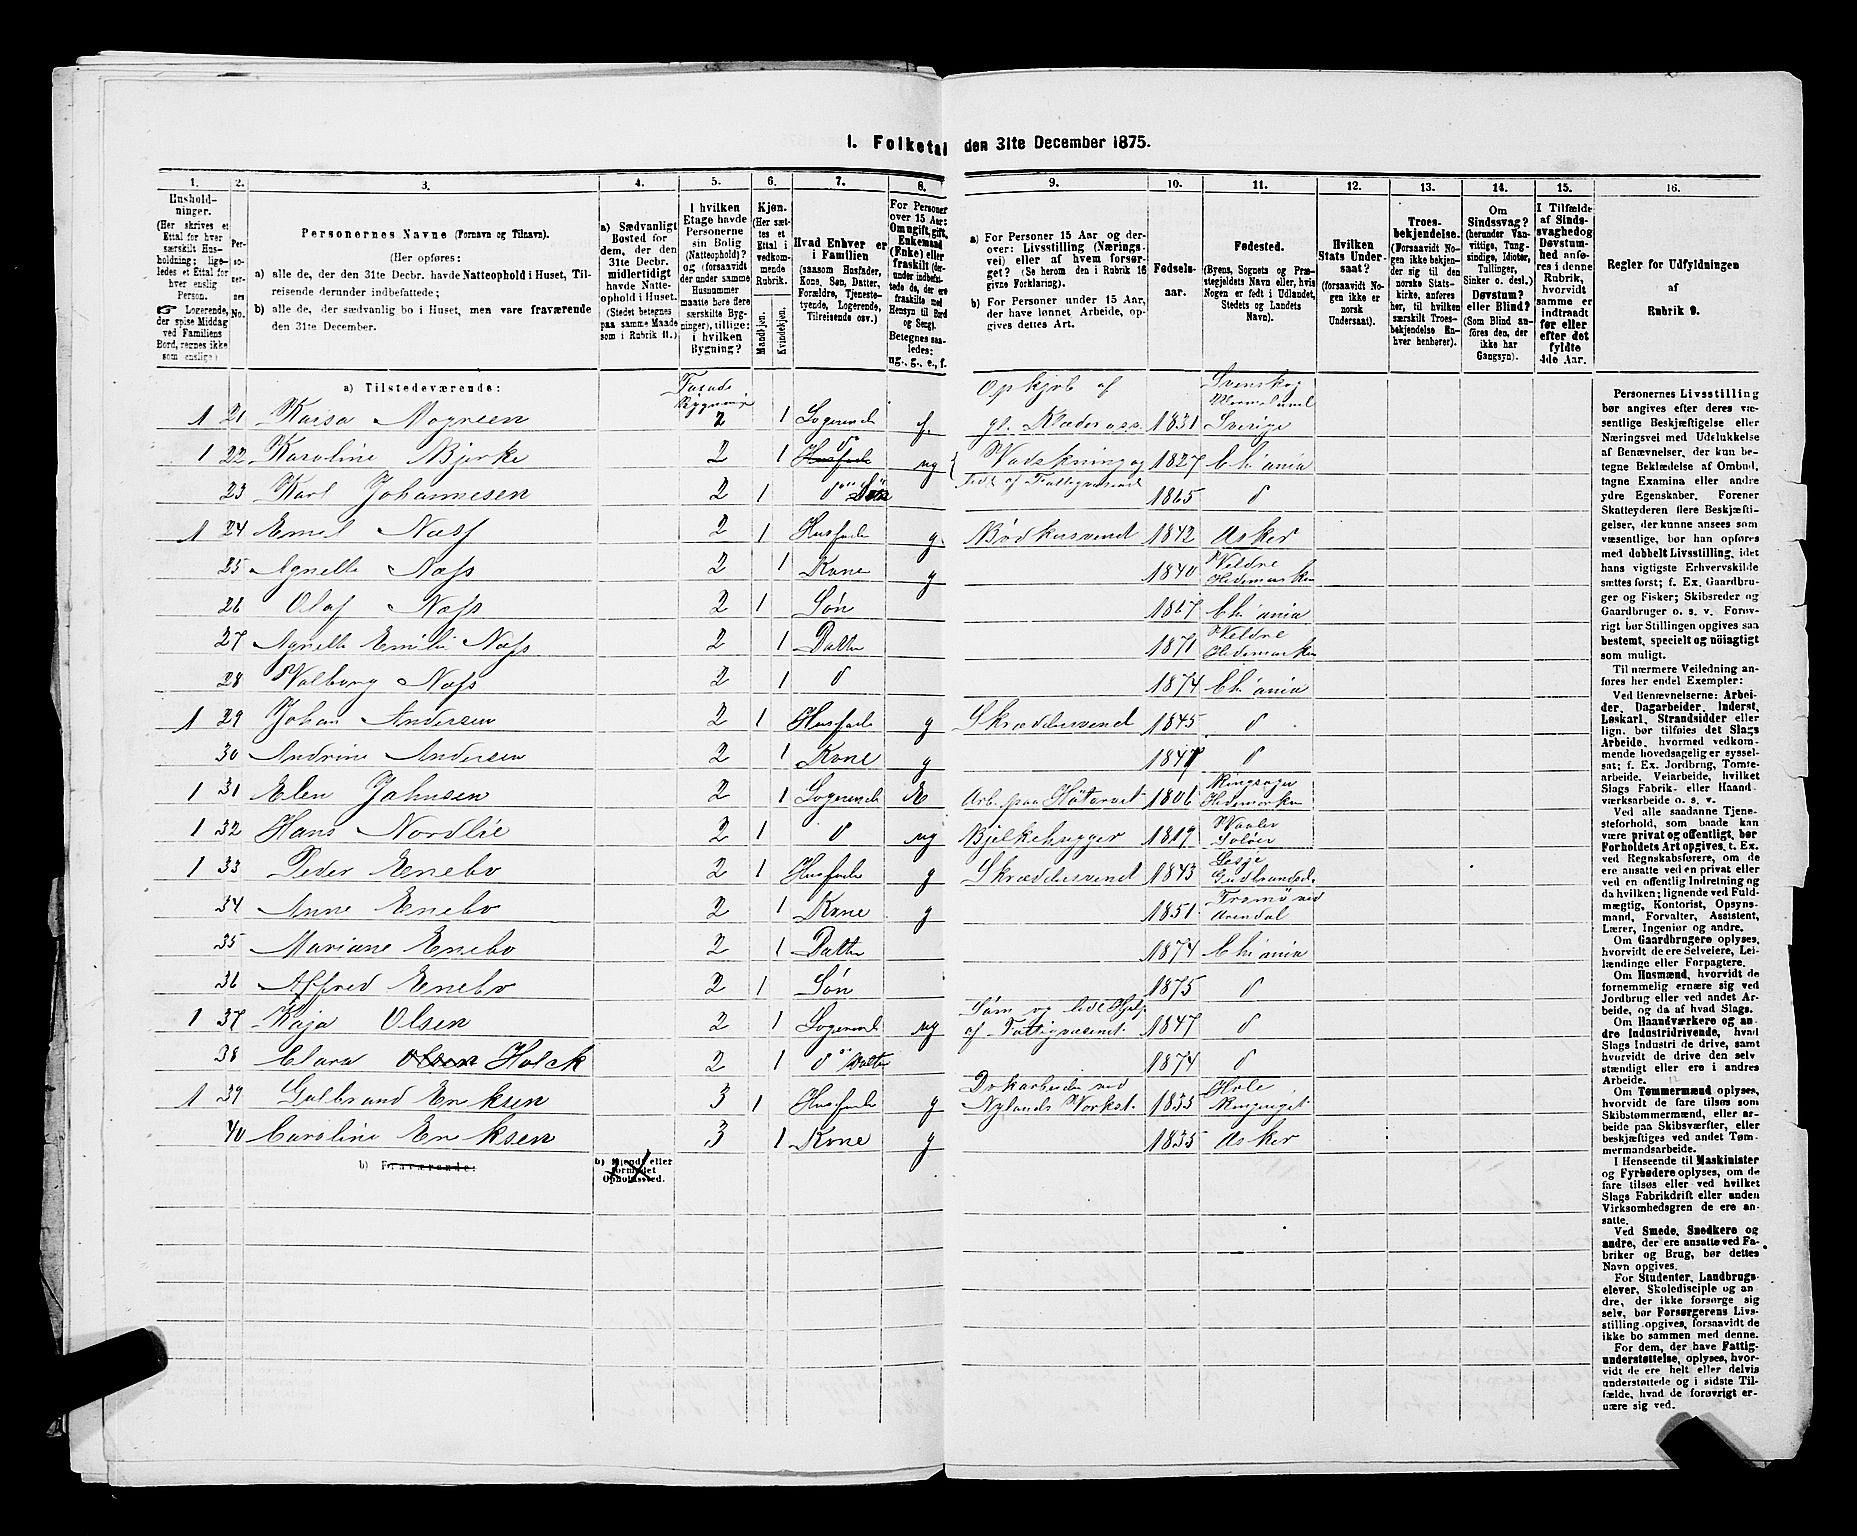 1. Folketal den 31te December 1875.
1. 2. 3. 4. 5. 6. 7. 8. 9. 10. 11. 12. 13. 14. 15. 16.
Husholdninger.
(Her skrives et Ettal for hver særskilt Husholdning; ligeledes et Ettal for hver enslig Person.
☞ Logerende, der spise Middag ved Familiens Bord, regnes ikke som enslige.)
Personernes No.
Personernes Navne (Fornavn og Tilnavn).
(Her opføres:
a) alle de, der den 31te Decbr. havde Natteophold i Huset, Tilreisende derunder indbefattede;
b) alle de, der sædvanlig bo i Huset, men vare fraværende den 31te December.
a) Sædvanligt Bosted for dem, der den 31te Decbr. midlertidigt havde Natteophold i Huset. (Stedet betegnes paa samme Maade som i Rubrik 11.)
I hvilken Etage havde Personerne sin Bolig (Natteophold)? og (forsaavidt der under samme Husnummer maatte høre flere særskilte Bygninger), tillige: i hvilken Bygning?
Kjøn.
(Her sættes et Ettal i vedkommende Rubrik.
Mandkjøn. Kvindekjøn.
Hvad Enhver er i Familien
(saasom Husfader, Kone, Søn, Datter, Forældre, Tjenestetyende, Logerende, Tilreisende osv.)
For Personer over 15 Aar: Om ugift, gift, Enkemand (Enke) eller fraskilt
Betegnes saaledes: ug., g., e., f.
a) For Personer 15 Aar og derover: Livsstilling (Næringsvei) eller af hvem forsørget? (Se herom den i Rubrik 16 givne Forklaring).
b) For Personer under 15 Aar, der have lønnet Arbeide, opgives dettes Art.
Fødselsaar.
Fødested.
(Byens, Sognets og Præstegjeldets Navn eller, hvis Nogen er født i Udlandet, Stedets og Landets Navn).
Hvilken Stats Undersaat?
(forsaavidt Nogen ikke er norsk Undersaat).
Troesbekjendelse.
(Forsaavidt Nogen ikke bekjender sig til den norske Statskirke, anføres her, til hvilken særskilt Troesbekjendelse Enhver henhører).
Om Sindssvag?
(herunder Vanvittige, Tungsindige, Idioter, Tullinger, Sinker o. desl.)
Døvstum? eller Blind?
(Som Blind anføres den, der ikke har Gangsyn).
I Tilfælde af Sindssvaghed og Døvstumhed anføres i denne Rubrik, hvorvidt samme er indtraadt før eller efter det fyldte 4de Aar.
Regler for Udfyldningen
af
Rubrik 9.
a) Tilstedeværende:
Facade Bygning Opkjøb af Svenskog Vermeland
1 21 Kaisa Nogreen 2 1 Logerende f. gl. Klæder oss. 1831 Sverige
1 22 Karoline Bjerke 2 1 do ug Vadskning og 1827 Chiania
23 Karl Johannesen 2 1 d "" Søn Fdt af Fattigvæsenet 1865 d
1 24 Emil Næss 2 1 Husfader g Bødkersvend 1842 Asker
25 Agnette Næss 2 1 Kone g 1840 Veldre Hedemarken
26 Olaf Næss 2 1 Søn 1867 Chiania
27 Agnette Emilie Næss 2 1 Datter 1871 Veldre Hedemarken
28 Valborg Næss 2 1 d 1874 Chiania
1 29 Johan Andersen 2 1 Husfader g Skræddersvend 1845 d
30 Andrine Andersen 2 1 Kone g 1847 d
1 31 Elen Jahnsen 2 1 Logerende E Arb. paa Høtorvet 1806 Ringsager Hedemarken
1 32 Hans Nordlie 2 1 d ug Bjelkehugger 1819 Vaaler Soløer
1 33 Peder Enebo 2 1 Husfader g Skræddersvend 1843 Lesje Gudbrandsd.
34 Anne Enebo 2 1 Kone g 1851 Tromø ved Arendal
35 Mariane Enebo 2 1 Datter 1874 Chiania
36 Alfred Enebo 2 1 Søn 1875 d
1 37 Kaja Olsen 2 1 Logerende ug Søm og lidt Hjelp af Fattigvæsenet 1847 d
38 Clara Olsen Holck 2 1 d " Datter 1874 d
1 39 Gulbrand Eriksen 3 1 Husfader g Dokarbeider ved Nylands Værkst. 1835 Hole Ringeriget
40 Caroline Eriksen 3 1 Kone g 1835 Asker
b) Fraværende:
b) Kjendt eller formodet Opholdssted.
Personernes Livsstilling
bør angives efter deres væ-
sentlige Beskjæftigelse eller
Næringsvei med Udelukkelse
af Benævnelser, der kun be-
tegne Beklædelse af Ombud,
tagne Examina eller andre
ydre Egenskaber. Forener
Skatteyderen flere Beskjæfti-
gelser, der kunne ansees som
væsentlige, bør han opføres
med dobbelt Livsstilling, idet
hans vigtigste Erhvervskilde
sættes først; f. Ex. Gaardbru-
ger og Fisker; Skibsreder og
Gaardbruger o. s. v. Forøv-
rigt bør Stillingen opgives saa
bestemt, specielt og nöiagtigt
som muligt.
Til nærmere Veiledning an-
føres her endel Exempler:
Ved Benævnelserne: Arbei-
der, Dagarbeider, Inderst,
Løskarl, Strandsidder eller
lign. bør tilføies det Slags
Arbeide, hvormed vedkom-
mende hovedsagelig er syssel-
sat; f. Ex. Jordbrug, Tomte-
arbeide, Veiarbeide, hvilket
Slags Fabrik- eller Haand-
værksarbeide o. s. v.
Ved alle saadanne Tjene-
steforhold, som baade kan
være privat og offentligt, bør
Forholdets Art opgives, t. Ex.
ved Regnskabsførere, om de
ere ansatte ved en privat eller
ved en offentlig Indretning og
da hvilken; lignende ved Fuld-
mægtig, Kontorist, Opsyns-
mand, Forvalter, Assistent,
Lærer, Ingeniør og andre.
Om Gaardbrugere oplyses,
hvorvidt de ere Selveiere, Lei-
lændinge eller Forpagtere.
Om Husmænd, hvorvidt de
fornemmelig ernære sig ved
Jordbrug eller ved andet Ar-
beide, og da af hvad Slags.
Om Haandværkere og an-
dre Industridrivende, hvad
Slags Industri de drive, samt
hvorvidt de drive den selv-
stændigt eller ere i andres
Arbeide.
Om Tømmermænd oplyses,
hvorvidt de fare tilsøs som
Skibstømmermænd, eller ar-
beide paa Skibsværfter, eller
beskjæftiges ved andet Tøm-
mermandsarbeide.
I Henseende til Maskinister
og Fyrbødere oplyses, om de
fare tilsøs eller ved hvilket
Slags Fabrikdrift eller anden
Virksomhedsgren de ere an-
satte.
Ved Smede, Snedkere og
andre, der ere ansatte ved Fa-
briker og Brug, bør dettes
Navn opgives.
For Studenter, Landbrugs-
elever, Skoledisciple og an-
dre, der ikke forsørge sig
selv, bør Forsørgerens Livs-
stilling opgives, forsaavidt de
ikke bo sammen med denne.
For dem, der have Fattig-
understøttelse, oplyses, hvor-
vidt de ere helt eller delvis
understøttede og i sidste Til-
fælde, hvad de forøvrigt er-
nære sig ved.